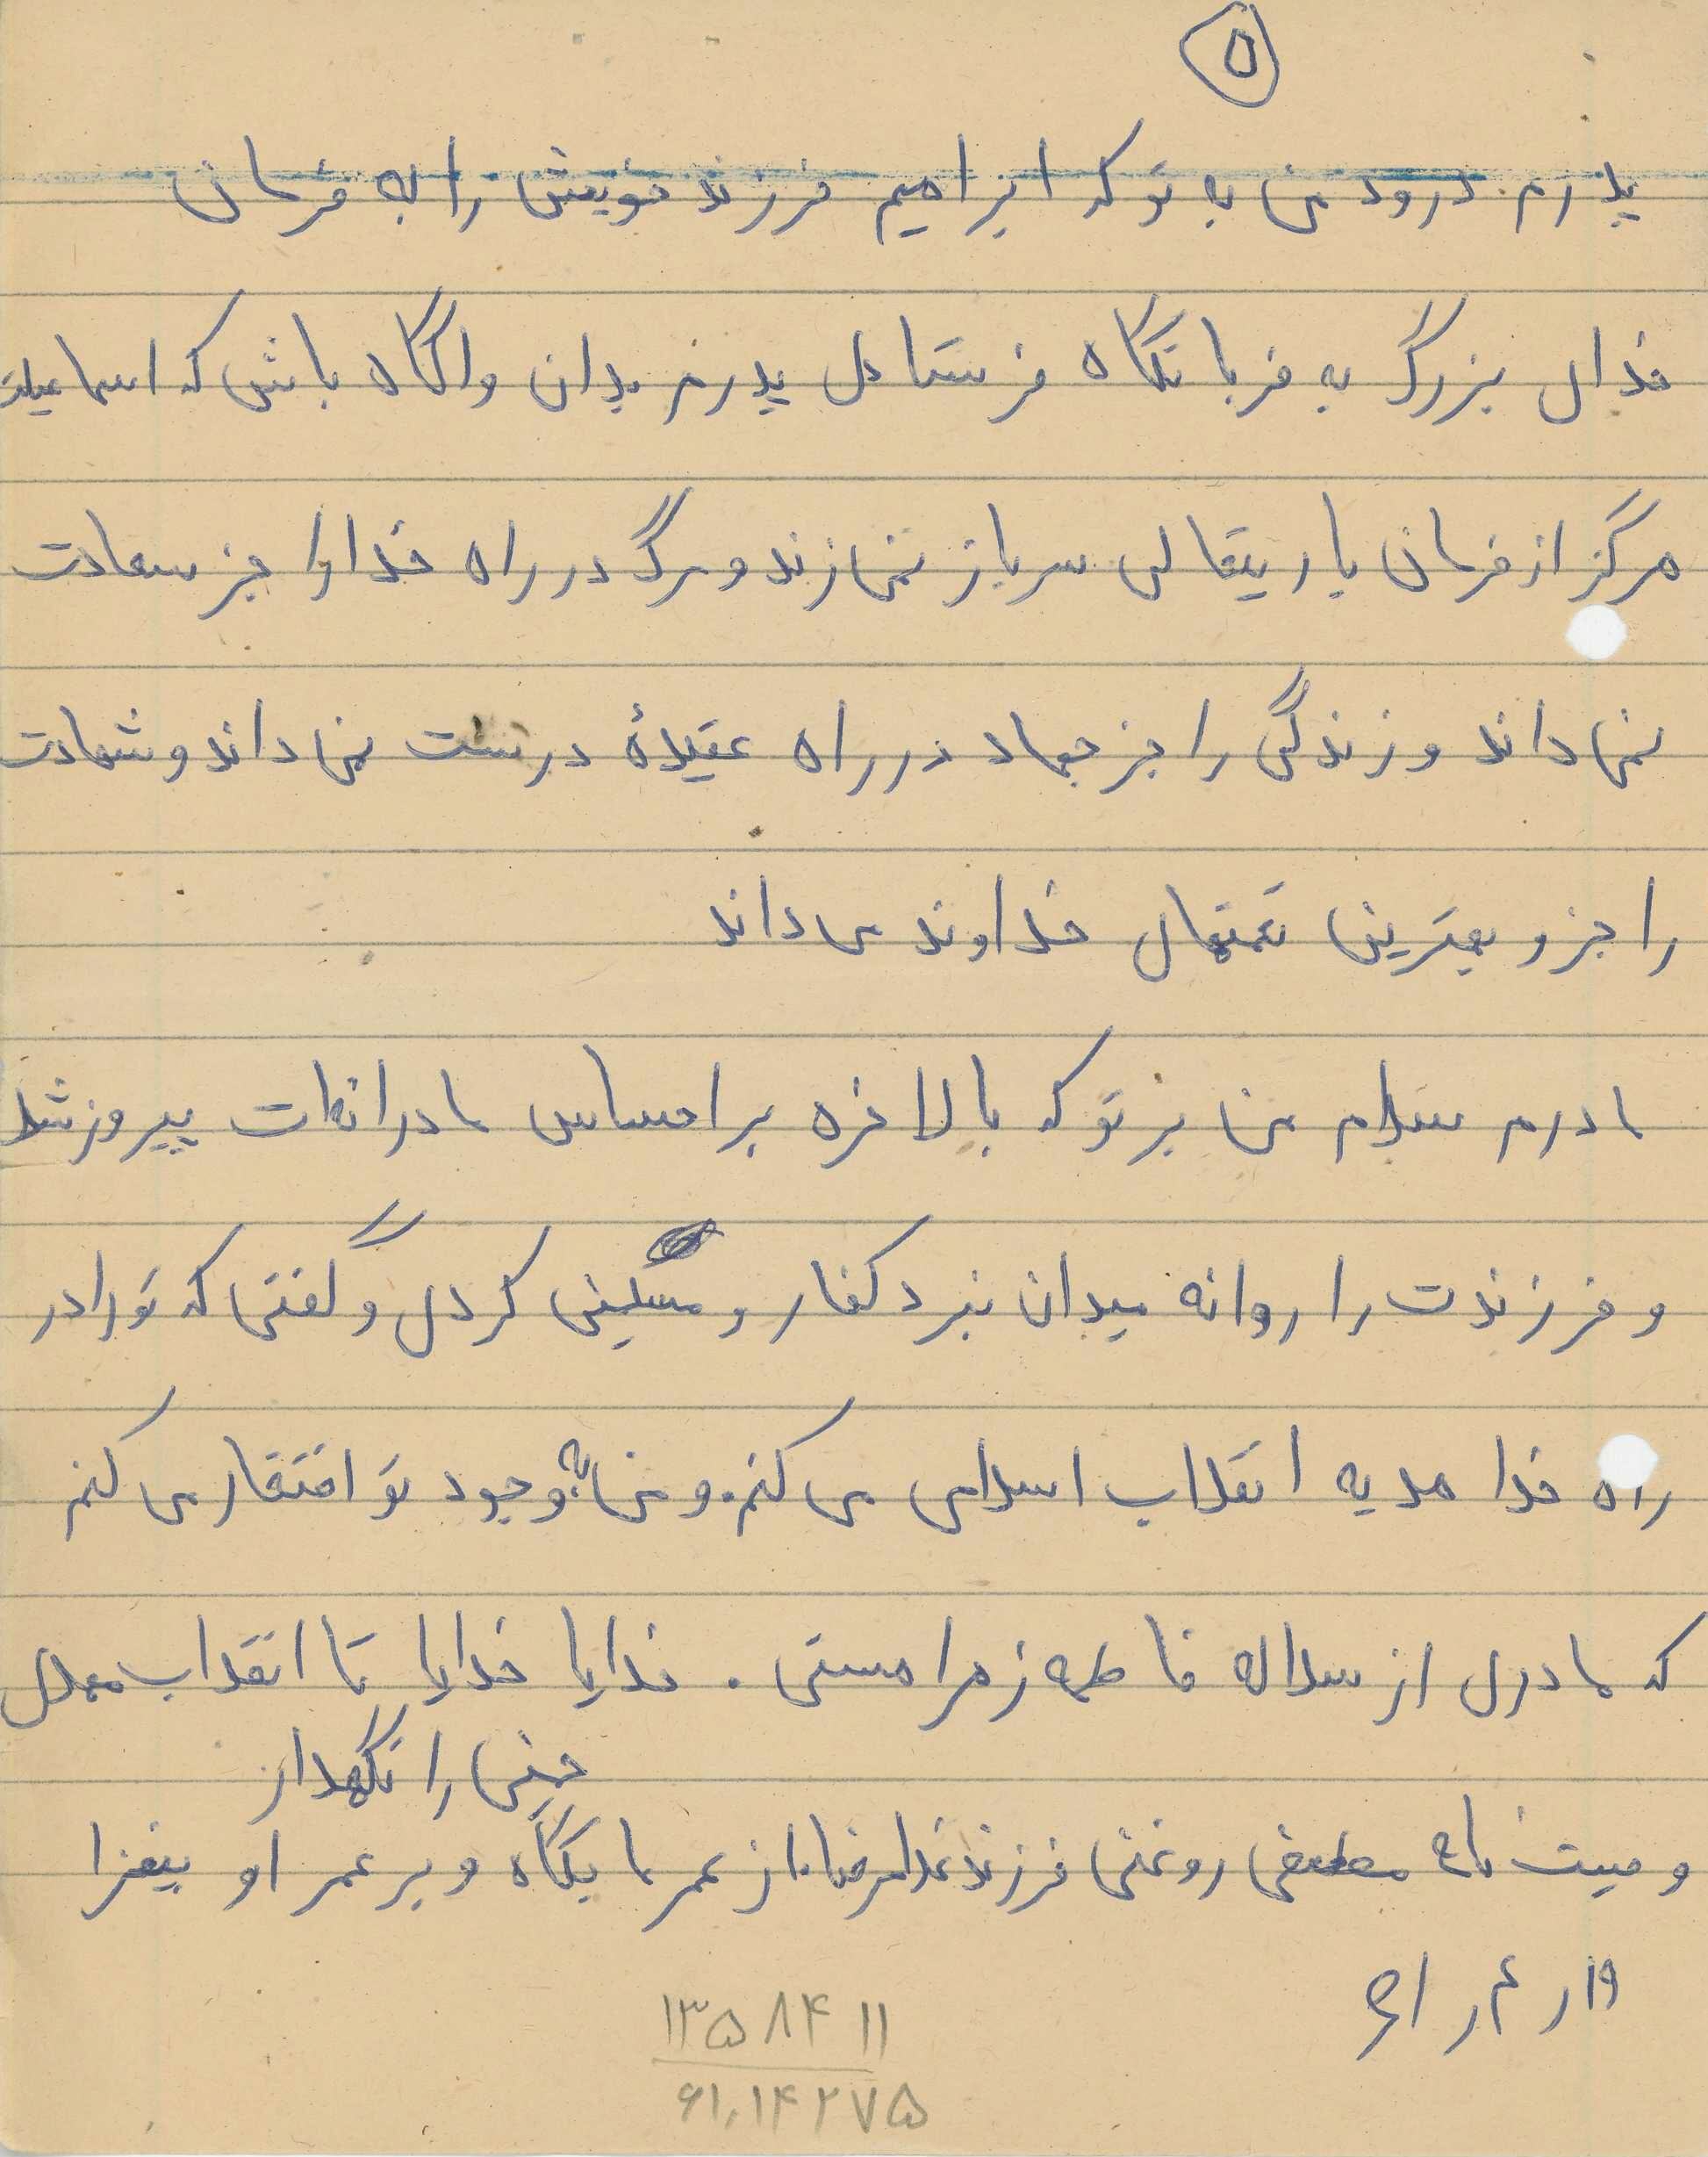 ۵
پدرم درود من به تو که ابراهیم فرزند خویش را به فرمان
خدای بزرگ به قربانگاه فرستادی پدرم بدان و اگاه باش که اسماعیلت
هرگز از فرمان باریتعالی سرباز نمی زند و مرگ در راه خدا را جز سعادت
نمی داند و زندگی را جز جهاد در راه عقیدهٔ درست نمی داند و شهادت
را جزو بهترین نعمتهای خداوند می داند
مادرم سلام من بر تو که بالاخره بر احساس مادرانه‌ات پیروز شدی
و فرزندت را روانه میدان نبرد کفار و کردی و گفتی که تو را در
راه خدا هدیه انقلاب اسلامی می کنم. و من به وجود تو افتخار می کنم
که مادری از سلاله فاطمه زهرا هستی. خدایا خدایا تا انقلاب مهدی
خمینی را نگهدار
وصیت نامه مصطفی روغنی فرزند غلامرضا. از عمر ما بکاه و بر عمر او بیفزا
۱۹ر۴ر۶۱
۱۳۵۸۴۱۱
۶۱,۱۴۲۷۵